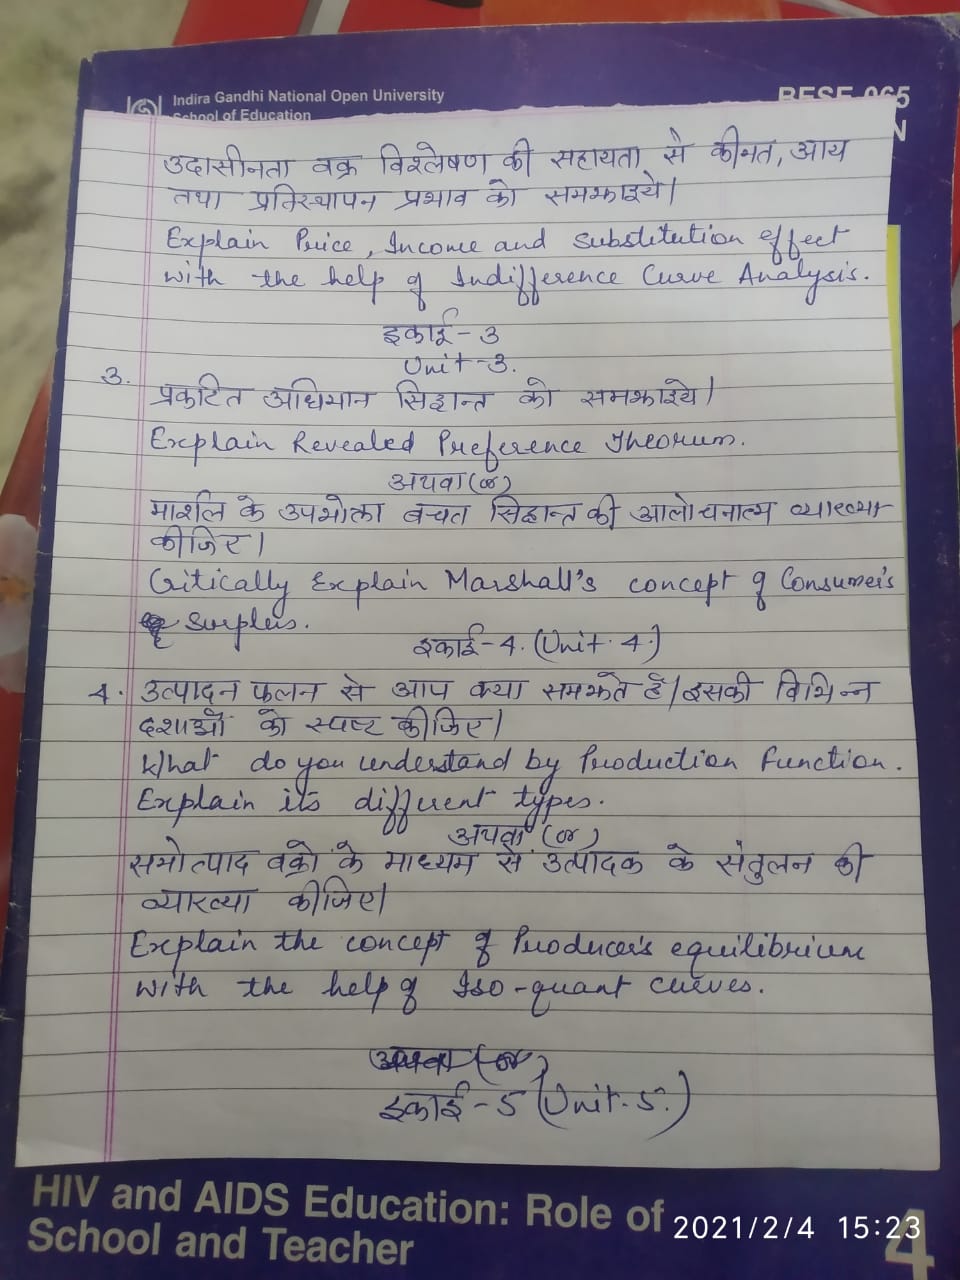 Indira Gandhi National Open University
School of Education
BESE-065
N
उदासीनता वक्र विश्लेषण की सहायता से कीमत, आय
तथा प्रतिस्थापन प्रभाव को समझाइये।
Explain Price, Income and substitution effect
with the help of Indifference Curve Analysis.
इकाई-3
Unit-3.
3.
प्रकटित अधिमान सिद्धान्त को समझाइये।
Explain Revealed Preference Theorum.
अथवा (or)
मार्शल के उपभोक्ता बचत सिद्धान्त की आलोचनात्म व्याख्या
कीजिए।
Critically Explain Marshall's concept of Consumer's
Surplus.
इकाई-4. (Unit. 4.)
4. उत्पादन फलन से आप क्या समझते हैं। इसकी विभिन्न
दशाओं को स्पष्ट कीजिए।
What do you understand by Production Function.
Explain its different types.
अथवा (or)
समोत्पाद वक्रों के माध्यम से उत्पादक के संतुलन की
व्याख्या कीजिए।
Explain the concept of Producer's equilibrium
with the help of Iso-quant curves.
अथवा (or)
इकाई-5 (Unit-5.)
HIV and AIDS Education: Role of
School and Teacher
2021/2/4 15:23
4